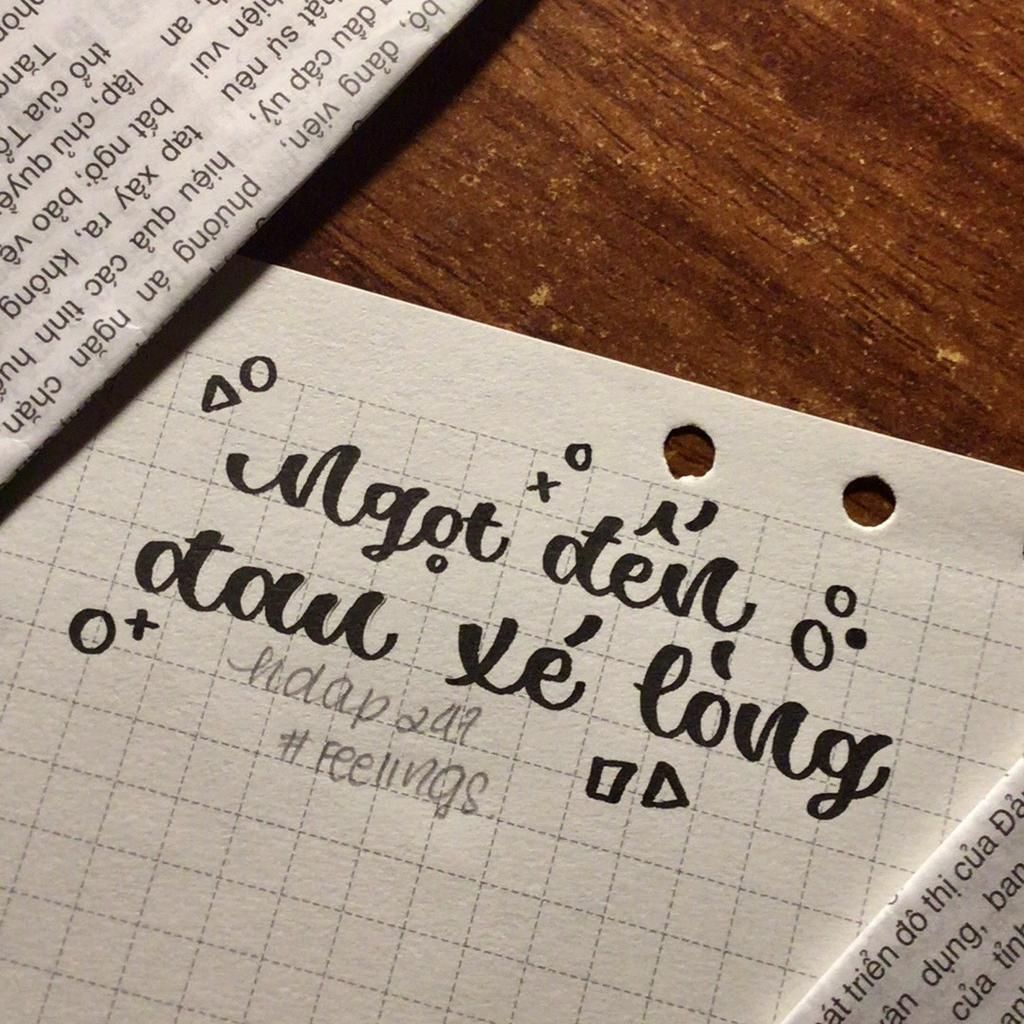 Ngọt đến
đau xé lòng
hdap247
#Feelings
bộ, đảng viên,
dấu cấp uỷ,
hật sự nêu
hiên vui
, an
phương án ngăn chặn
hiệu quả các tình huố
tạp xảy ra, không
bất ngờ; bảo vệ
lập, chủ quyền
thổ của Tổ
Tăng
át triển đô thị của Đả
dụng, ban
của tỉnh